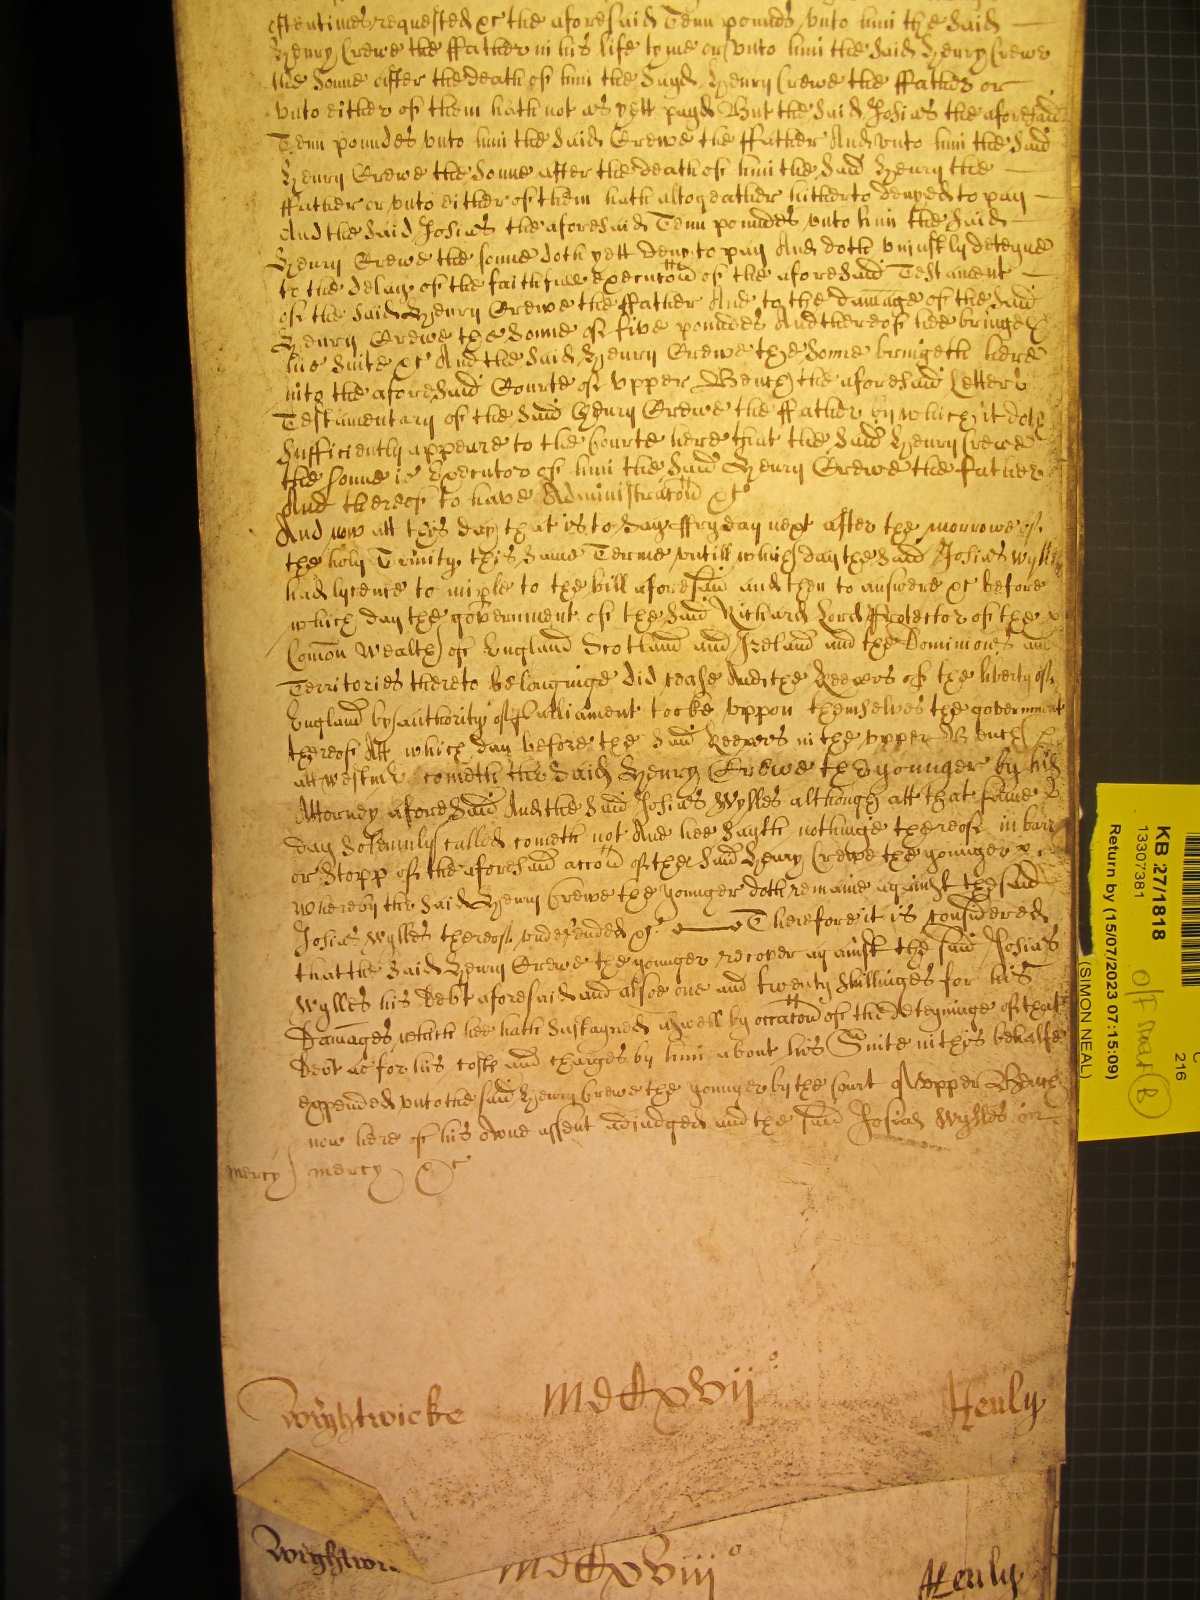 oftentimes requested &c the aforesaid Tenn pounds vnto him the said
Henry Crewe the ffather in his life tyme or vnto him the said Henry Crewe
the sonne after the death of him the sayd Henry Crewe the ffather or
vnto either of them hath not as yett payd But the said Josias the aforesaid
Tenn poundes vnto him the said Crewe the ffather And vnto him the said
Henry Crewe the sonne after the death of him the said Henry the
ffather or vnto either of them hath altogeather hitherto denyed to pay
And the said Josias the aforesaid Tenn poundes vnto him the said
Henry Crewe the sonne doth yett deny to pay And doth vniustly deteyne
to the delay of the faithfull execucon of the aforesaid Testament
of the said Henry Crewe the ffather And to the damage of the said
Henry Crewe the sonne of five poundes And thereof hee bringeth
his suite &c And the said Henry Crewe the sonne bringeth here
into the aforesaid Courte of vpper Bench the aforesaid Letters
Testamentary of the said Henry Crewe the ffather by which it doth
sufficiently appeare to the Courte here that the said Henry Crewe
the sonne is Executor of him the said Henry Crewe the father
And thereof to have Administracon &c
And now att this day that is to say ffryday next after the morrowe of
the holy Trinity this same Terme vntill which day the said Josias Wylles
had lycence to imple to the bill aforesaid and then to answere &c before
which day the government of the said Richard Lord Protector of the
Comon Wealth of England Scotland and Ireland and the Dominions and
Territories thereto belonginge did cease And the Keepers of the liberty of
England by authority of Parliament tooke vppon themselves the government
thereof Att which day before the said Keepers in the vpper Bench
att Westmr cometh the said Henry Crewe the younger by his
Attorney aforesaid And the said Josias Wylles although att that same
day solemnly called cometh not And hee sayth nothinge thereof in barr
or stopp of the aforesaid accon of the said Henry Crewe the younger
whereby the said Henry Crewe the younger doth remaine against the said
Josias Wylles thereof vndefended &c Therefore it is considered
that the said Henry Crewe the younger recover against the said Josias
Wylles his debt aforesaid and alsoe one and twenty shillinges for his
Damages which hee hath sustayned aswell by occacon of the deteyninge of that
debt as for his costs and charges by him about his Suite in this behalfe
expended vnto the said Henry Crewe the younger by the Court of vpper Bench
now here of his owne assent adiudged and the said Josias Wylles in
mercy mercy &c
Wightwicke mdCxvij o Henly
Wightwi mdCxviij o Henly
KB 27/1818
13307381
Return by (15/07/2023 07:15:09)
(SIMON NEAL)
216